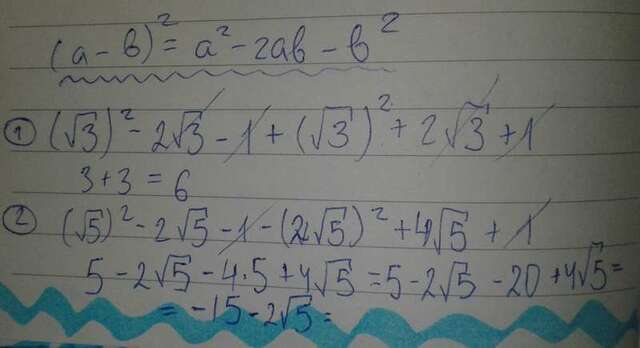 (a - b)² = a² - 2ab - b²
① (√3)² - 2√3 - 1 + (√3)² + 2√3 + 1
3 + 3 = 6
② (√5)² - 2√5 - 1 - (2√5)² + 4√5 + 1
5 - 2√5 - 4·5 + 4√5 = 5 - 2√5 - 20 + 4√5 =
= -15 - 2√5 =